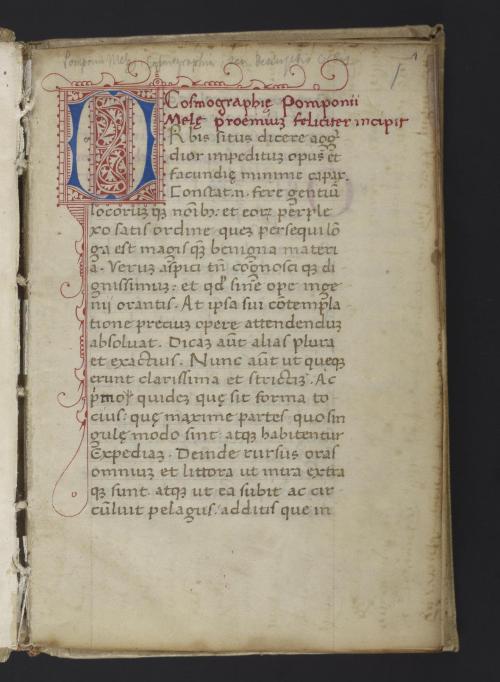 Pomponii Mele Cosmographia
1
Cosmographię Pomponii
Melę proemiuz feliciter incipit
ORbis situs dicere agg
dior impeditus opus et
facundię minime capax.
Constat.n. fere gentiū
locoruzqz noībȝ: et eoꝝ perple
xo satis ordine quez persequi lō
ga est magis qz benigna materi
a. Veruz aspici tn̄ cognosciqz di
gnissimuz: et qd' sine ope inge
nii orantis. At ipsa sui cōtempla
tione preciuz opere attendenduz
absoluat. Dicaz aūt alias plura
et exactius. Nunc aūt ut queqz
erunt clarissima et strictiz. Ac
pͥmoꝝ quidez quę sit forma to
cius: quę maxime partes quo sin
gulę modo sint: atqz habitentur
Expediaz. Deinde rursus oras
omniuz et littora ut intra extra
qz sunt. atqz ut ea subit ac cir
cūluit pelagus. additis que in